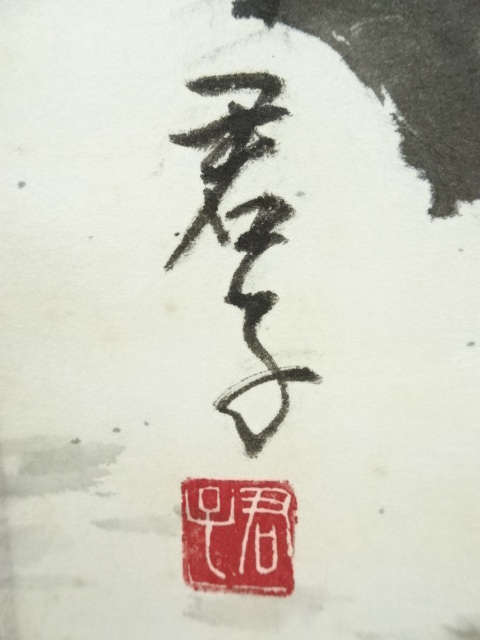 君子
君子